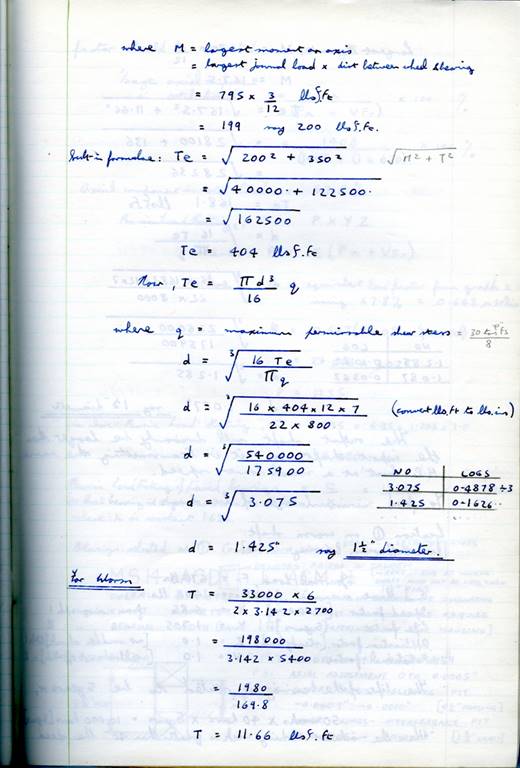 where M = largest moment on axis
= largest journal load × dist between wheel & bearing
= 795 × 3/12 lbs f. ft
= 199 say 200 lbs f. ft.
Sub-in formulae: Te = √200² + 350² √M² + T²
= √40000 + 122500
= √162500
Te = 404 lbs f. ft
Now, Te = πd³/16 q
where q = maximum permissable shear stress = 30 /8
d = ³√16 Te/πq
d = ³√16 × 404 × 12 × 7/22 × 800 (convert lbs. ft to lbs. ins)
d = ³√540000/175900
NO LOGS
3.075 0.4878 ÷3
d = ³√3.075 1.425 0.1626..
d = 1.425" say 1½" diameter.
For Worm
T = 33000 × 6/2 × 3.142 × 2700
= 198000/3.142 × 5400
= 1980/169.8
T = 11.66 lbs f. ft